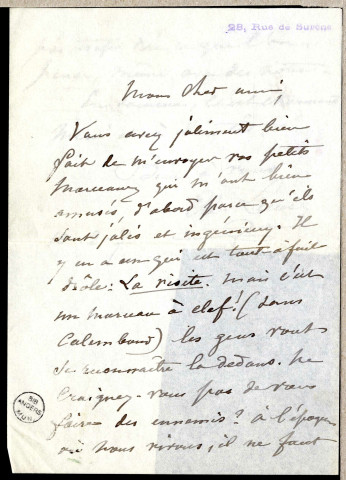 28, Rue de Surène
Mon cher ami,
Vous avez joliment bien
fait de m'envoyer vos petits
morceaux qui m'ont bien
amusé, d'abord parce qu'ils
sont jolis et ingénieux. Il
y en a un qui est tout à fait
drôle : La visite. mais c'est
un morceau à clef ! (sans
calembour) les gens vont
se reconnaître là dedans. Ne
craignez-vous pas de vous
faire des ennemis ? à l'époque
où nous vivons, il ne faut
BIB
ANGERS
MUN